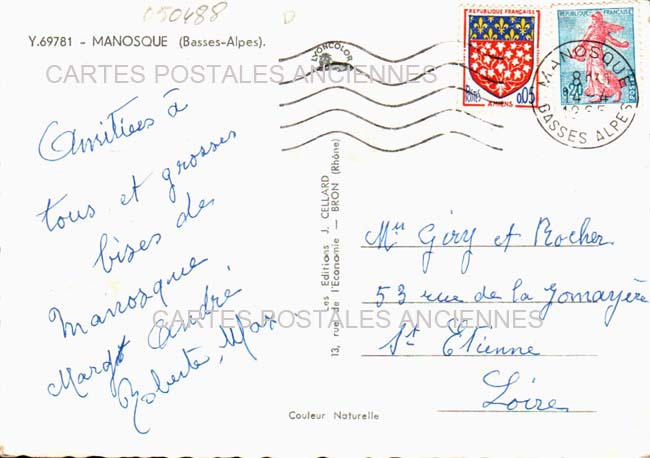 c50488
Y.69781 - MANOSQUE (Basses-Alpes).
CARTES POSTALES ANCIENNES
Amitiés à
tous et grosses
bises de
Manosque
Margt André
Roberte, Max
CARTES POSTALES ANCIENNES
LYONCOLOR
Les Editions J. CELLARD
13, rue de l'Economie — BRON (Rhône)
Couleur Naturelle
REPUBLIQUE FRANÇAISE
POSTES
0,05
AMIENS
REPUBLIQUE FRANÇAISE
0,20
MANOSQUE
8H
4-4
BASSES ALPES
Mrs Giry et Rocher
53 rue de la Gomayère
St Etienne
Loire